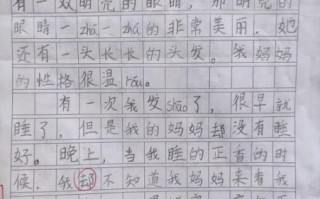 有一双明亮的眼睛，那明亮的
眼睛一zhá一zhá的非常美丽。她
还有一头长长的头发。我妈妈
的性格很温róu。
有一次我发shāo了，很早就
睡了，但是我的妈妈却没有睡
好。晚上，当我睡的正香的时
候，我却不知道我妈妈来看我